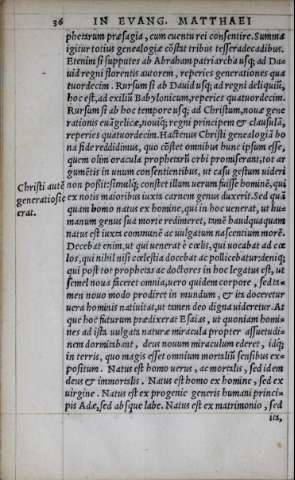 36 IN EVANG. MATTHAEI
phetarum præsagia, cum euentu rei consentire. Summa
igitur totius genealogiæ cōstat tribus tesseradecadibus.
Etenim si supputes ab Abraham patriarcha usq; ad Da
uid regni florentis autorem, reperies generationes qua
tuordecim. Rursum si ab Dauid usq; ad regni deliquiū,
hoc est, ad exiliū Babylonicum, reperies quatuordecim.
Rursum si ab hoc tempore usq; ad Christum, nouæ gene
rationis euāgelicæ, nouiq; regni principem & clausulā,
reperies quatuordecim. Hactenus Christi genealogiā bo
na fide reddidimus, quo cōstet omnibus hunc ipsum esse,
quem olim oracula prophetarū orbi promiserant, tot ar
gumētis in unum consentientibus, ut casu gestum uideri
non possit: simulq; constet illum uerum fuisse hominē, qui
ex notis maioribus iuxta carnem genus duxerit. Sed quā
quam homo natus ex homine, qui in hoc uenerat, ut hu-
manum genus suā morte redimeret, tamē haudquaquam
natus est iuxta communē ac uulgatum nascentium morē.
Christi autē
generatio sic
erat.
Decebat enim, ut qui uenerat è cœlis, qui uocabat ad cœ
los, qui nihil nisi cœlestia docebat ac pollicebatur: deniq;
qui post tot prophetas ac doctores in hoc legatus est, ut
semel noua faceret omnia, uero quidem corpore, sed ta-
men nouo modo prodiret in mundum, & ita doceretur
uera hominis natiuitas, ut tamen deo digna uideretur. At
que hoc futurum prædixerat Esaias, ut quoniam homi-
nes ad ista uulgata naturæ miracula propter assuetudi-
nem dormitabant, deus nouum miraculum ederet, idq;
in terris, quo magis esset omnium mortaliū sensibus ex-
positum. Natus est homo uerus, ac mortalis, sed idem
deus & immortalis. Natus est homo ex homine, sed ex
uirgine. Natus est ex progenie generis humani princi-
pis Adæ, sed absque labe. Natus est ex matrimonio, sed